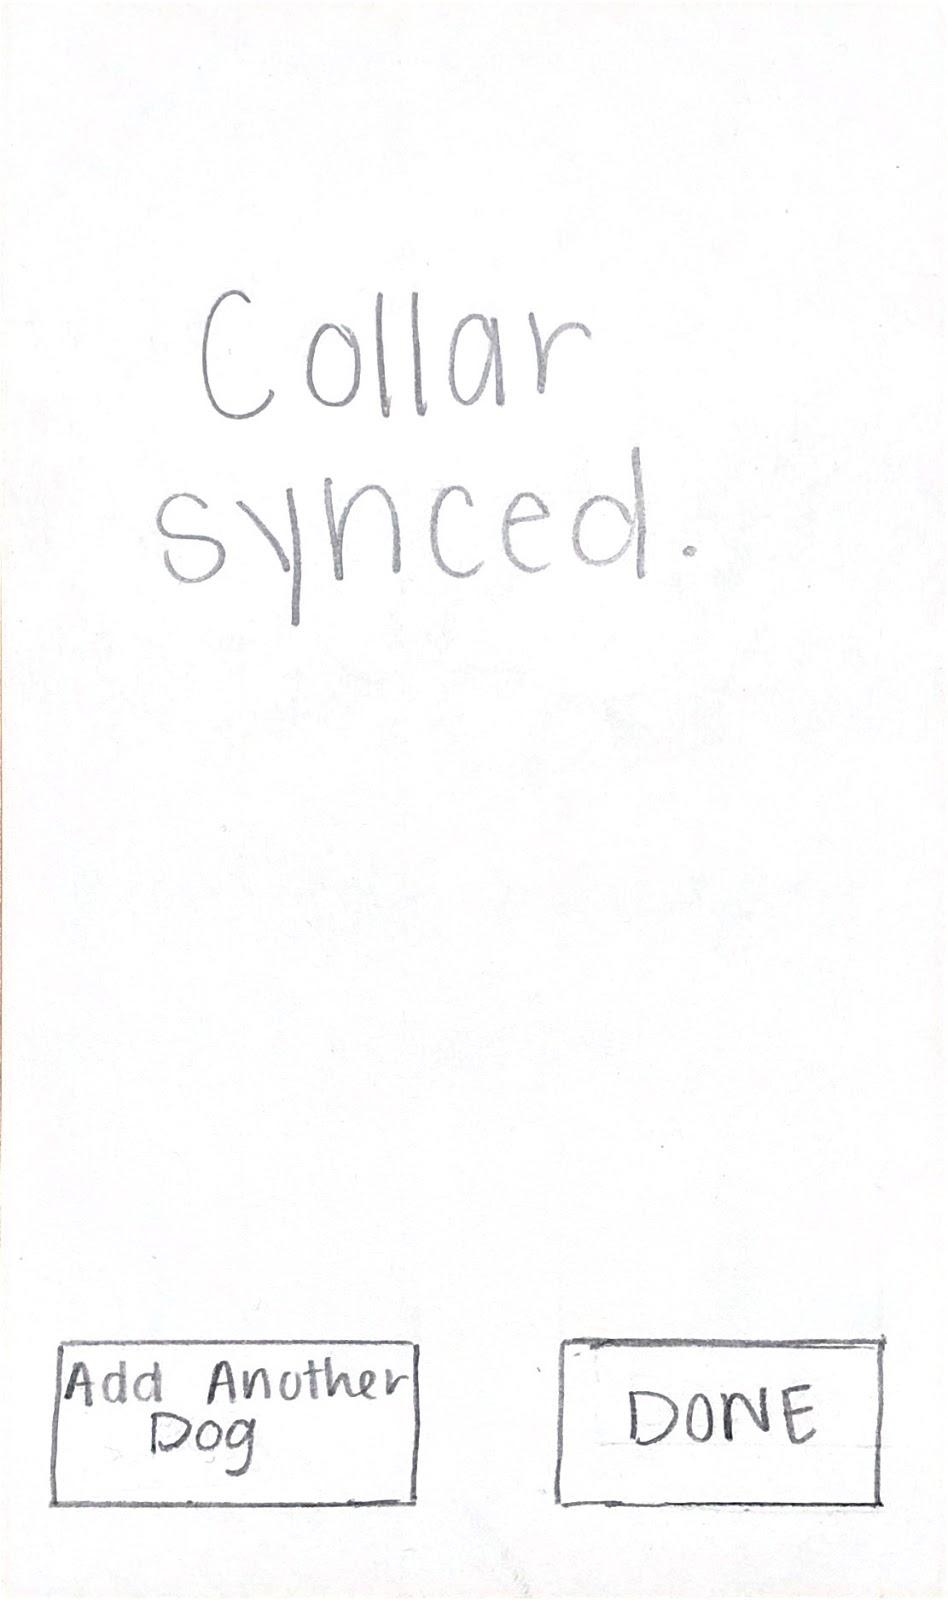 Collar
synced.
Add Another
Dog
DONE